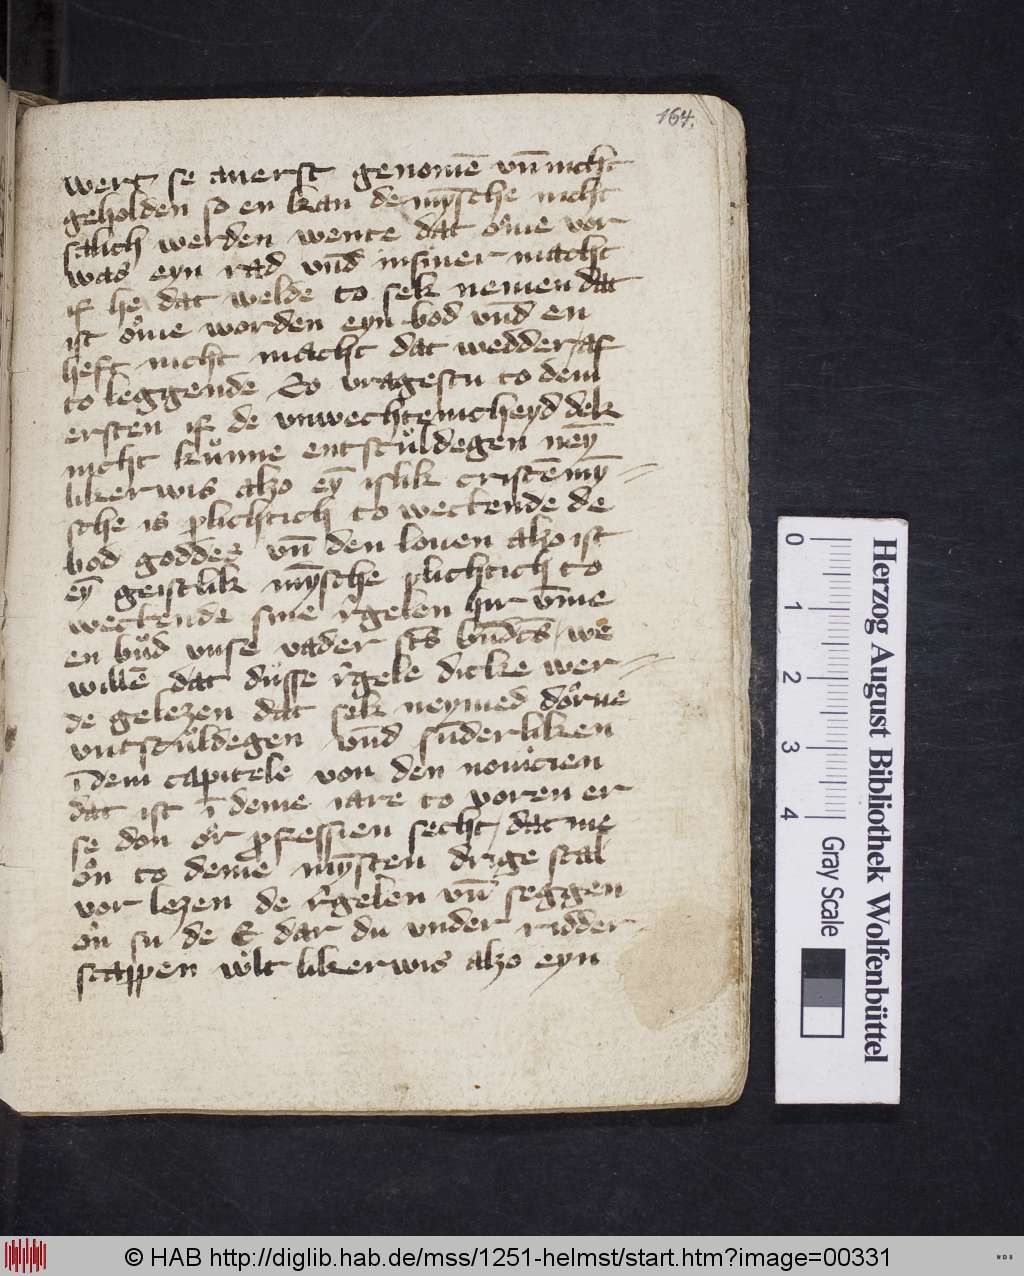 164.
wert se auerst genomē vn̄ nicht
geholden so en kan de mȳsche nicht
salich werden wente dat ome vor
was eyn rad vnd in siner macht
if he dat welde to sek nemen dat
ist ome worden eyn bod vnd en
heft nicht macht dat wedder af
to leggende So vragestu to dem
ersten if de vnwechtenicheyd dek
nicht kunne entsculdegen neyn
likerwis alzo eȳ islik cristē mȳ
sche is plichtich to wettende de
bod goddes vn̄ den louen alzo ist
eȳ geistlik mȳsche plichtich to
wettende sine r̄gelen hir vm̄e
en bud vnse vader sc̄s bn̄dc̄s we
willē dat dusse r̄gele dicke wer
de gelezen dat sek neymed dorue
vntsculdegen vnd sunderliken
ī dem capitele von den nouicien
dat ist ī deme iare to voren er
se don or professien secht dat me
on to deme mȳsten drige scal
vor lezen de r̄gelen vn̄ seggen
on su de E dar du vnder ridder
scappen wlt likerwis alzo eyn
Herzog August Bibliothek Wolfenbüttel
0 1 2 3 4
Gray Scale
© HAB http://diglib.hab.de/mss/1251-helmst/start.htm?image=00331